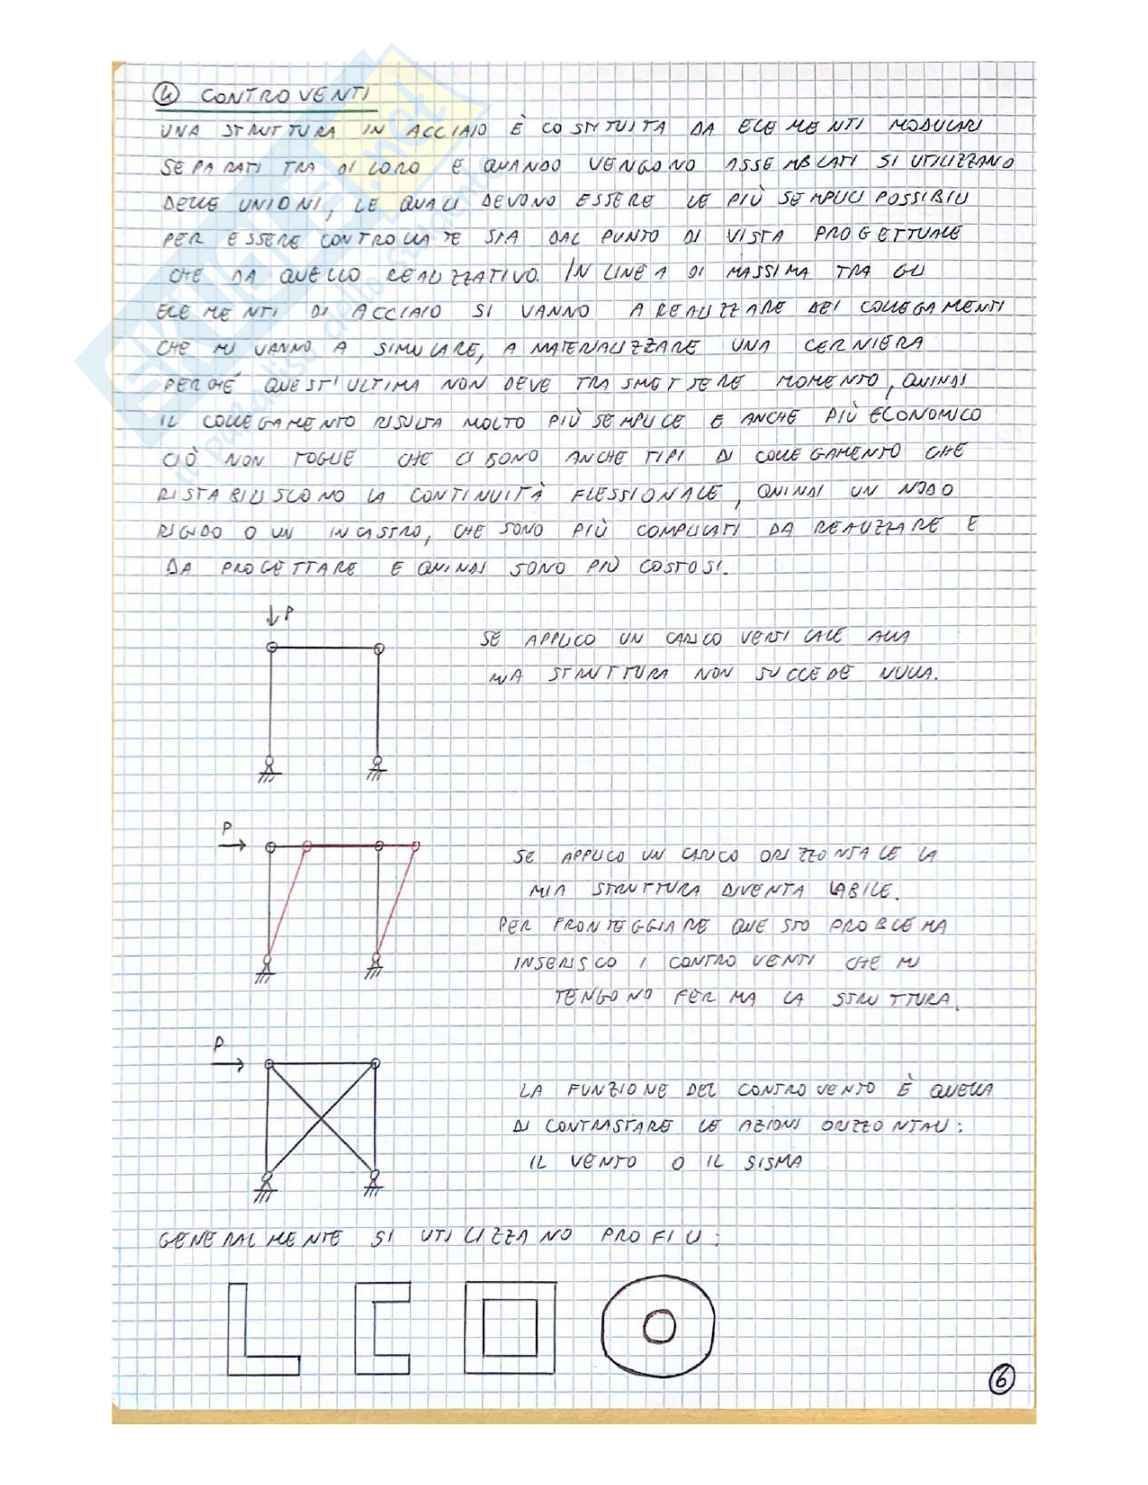 ④ CONTROVENTI
UNA STRUTTURA IN ACCIAIO È COSTITUITA DA ELEMENTI MODULARI
SEPARATI TRA DI LORO E QUANDO VENGONO ASSEMBLATI SI UTILIZZANO
DELLE UNIONI, LE QUALI DEVONO ESSERE LE PIÙ SEMPLICI POSSIBILI
PER ESSERE CONTROLLATE SIA DAL PUNTO DI VISTA PROGETTUALE
CHE DA QUELLO REALIZZATIVO. IN LINEA DI MASSIMA TRA GLI
ELEMENTI DI ACCIAIO SI VANNO A REALIZZARE DEI COLLEGAMENTI
CHE MI VANNO A SIMULARE, A MATERIALIZZARE UNA CERNIERA
PERCHÉ QUEST'ULTIMA NON DEVE TRASMETTERE MOMENTO, QUINDI
IL COLLEGAMENTO RISULTA MOLTO PIÙ SEMPLICE E ANCHE PIÙ ECONOMICO
CIÒ NON TOGLIE CHE CI SONO ANCHE TIPI DI COLLEGAMENTO CHE
RISTABILISCONO LA CONTINUITÀ FLESSIONALE, QUINDI UN NODO
RIGIDO O UN INCASTRO, CHE SONO PIÙ COMPLICATI DA REALIZZARE E
DA PROGETTARE E QUINDI SONO PIÙ COSTOSI.
P
SE APPLICO UN CARICO VERTICALE ALLA
MIA STRUTTURA NON SUCCEDE NULLA.
P
SE APPLICO UN CARICO ORIZZONTALE LA
MIA STRUTTURA DIVENTA LABILE.
PER FRONTEGGIARE QUESTO PROBLEMA
INSERISCO I CONTROVENTI CHE MI
TENGONO FERMA LA STRUTTURA.
P
LA FUNZIONE DEL CONTROVENTO È QUELLA
DI CONTRASTARE LE AZIONI ORIZZONTALI:
IL VENTO O IL SISMA
GENERALMENTE SI UTILIZZANO PROFILI:
6